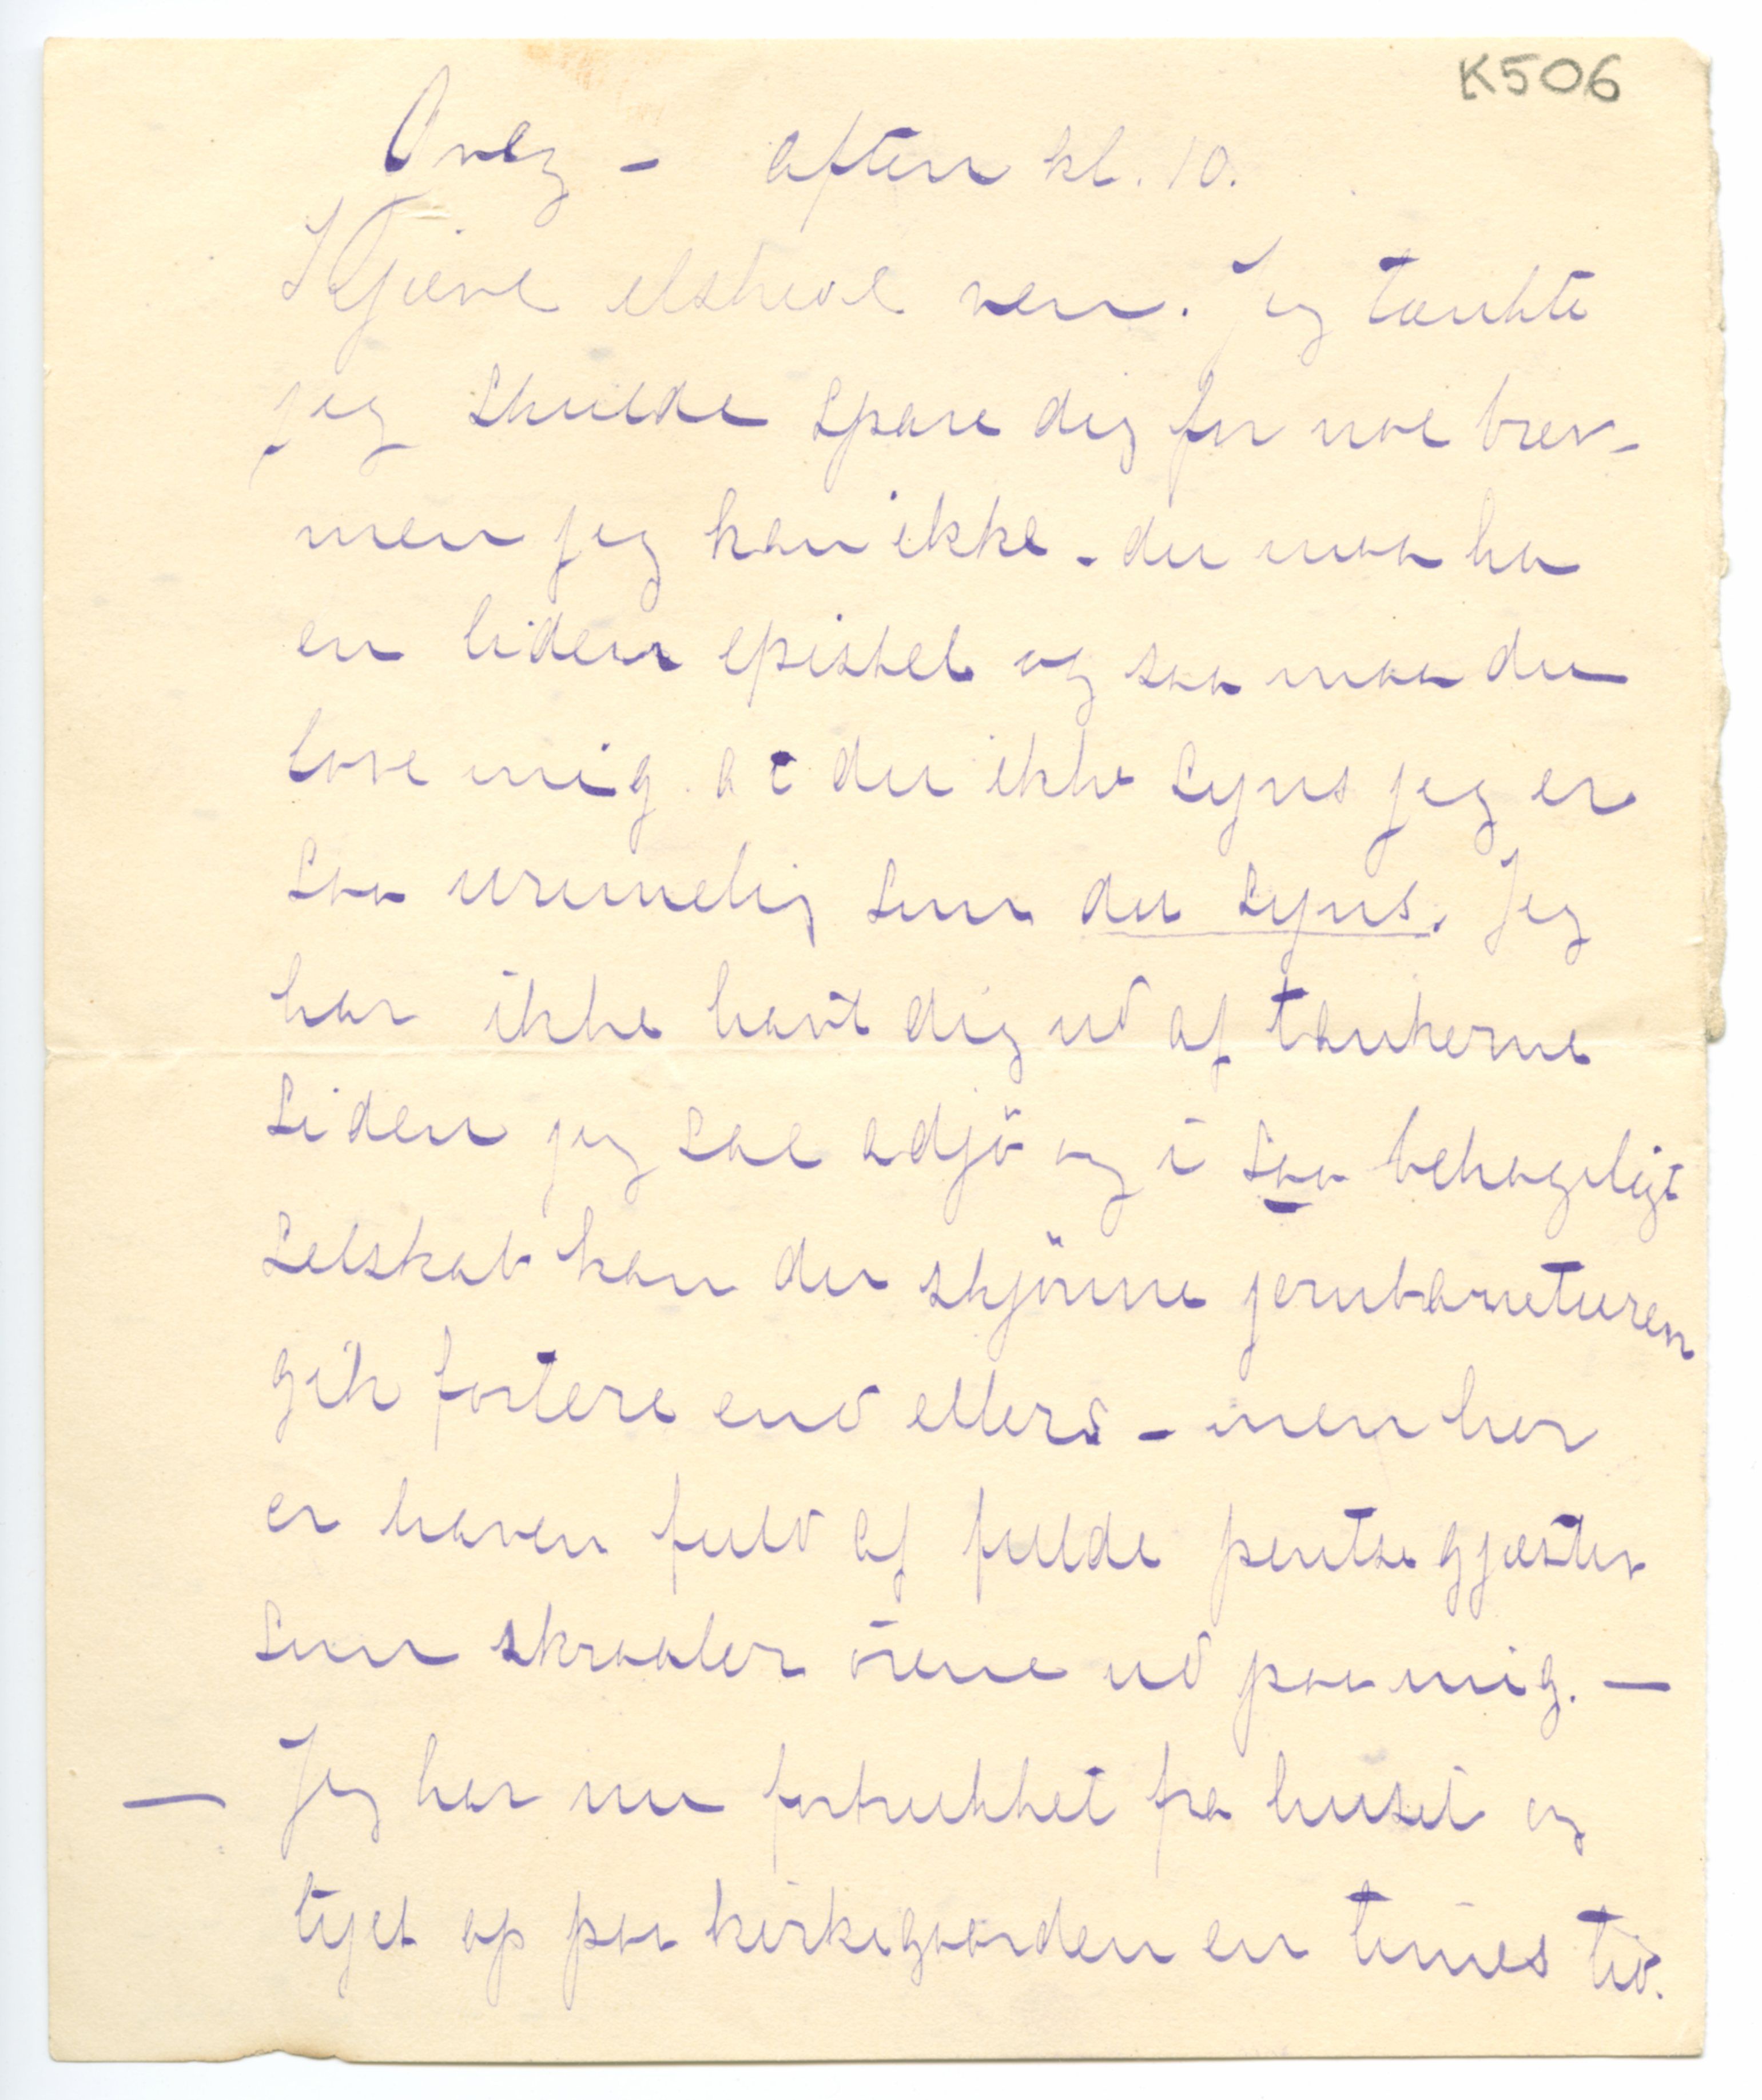 K506
Onsg – aften kl. 10.
Kjære elskede ven. Jeg tænkte
jeg skulde spare dig for noe brev –
men jeg kan ikke – du maa ha
en liden epistel og saa maa du
love mig at du ikke syns jeg er
saa urimelig som du syns. Jeg
har ikke havt dig ud af tankerne
siden jeg sae adjö og i saa behageligt
selskab kan du skjönne jernbaneturen
gik fortere end ellers – men her
er haven fuld af fulde pintsegjæster
som skraaler örene ud paa mig. —
— Jeg har nu fortrukket fra huset og
tyet op paa kirkegaarden en times tid.